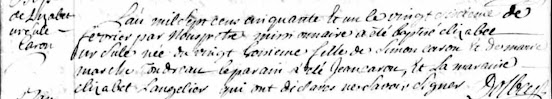 de Elizabet
ursule
Caron
L'an mil sept cens cinquante et un le vingt de
fevrier par nous prêtre missionnaire a été baptisé elizabet
ursule née du vingt fille de Simon caron et de marie
le parain a été Jean caron, et la maraine
elizabet Langelier qui ont déclarés ne savoir signer